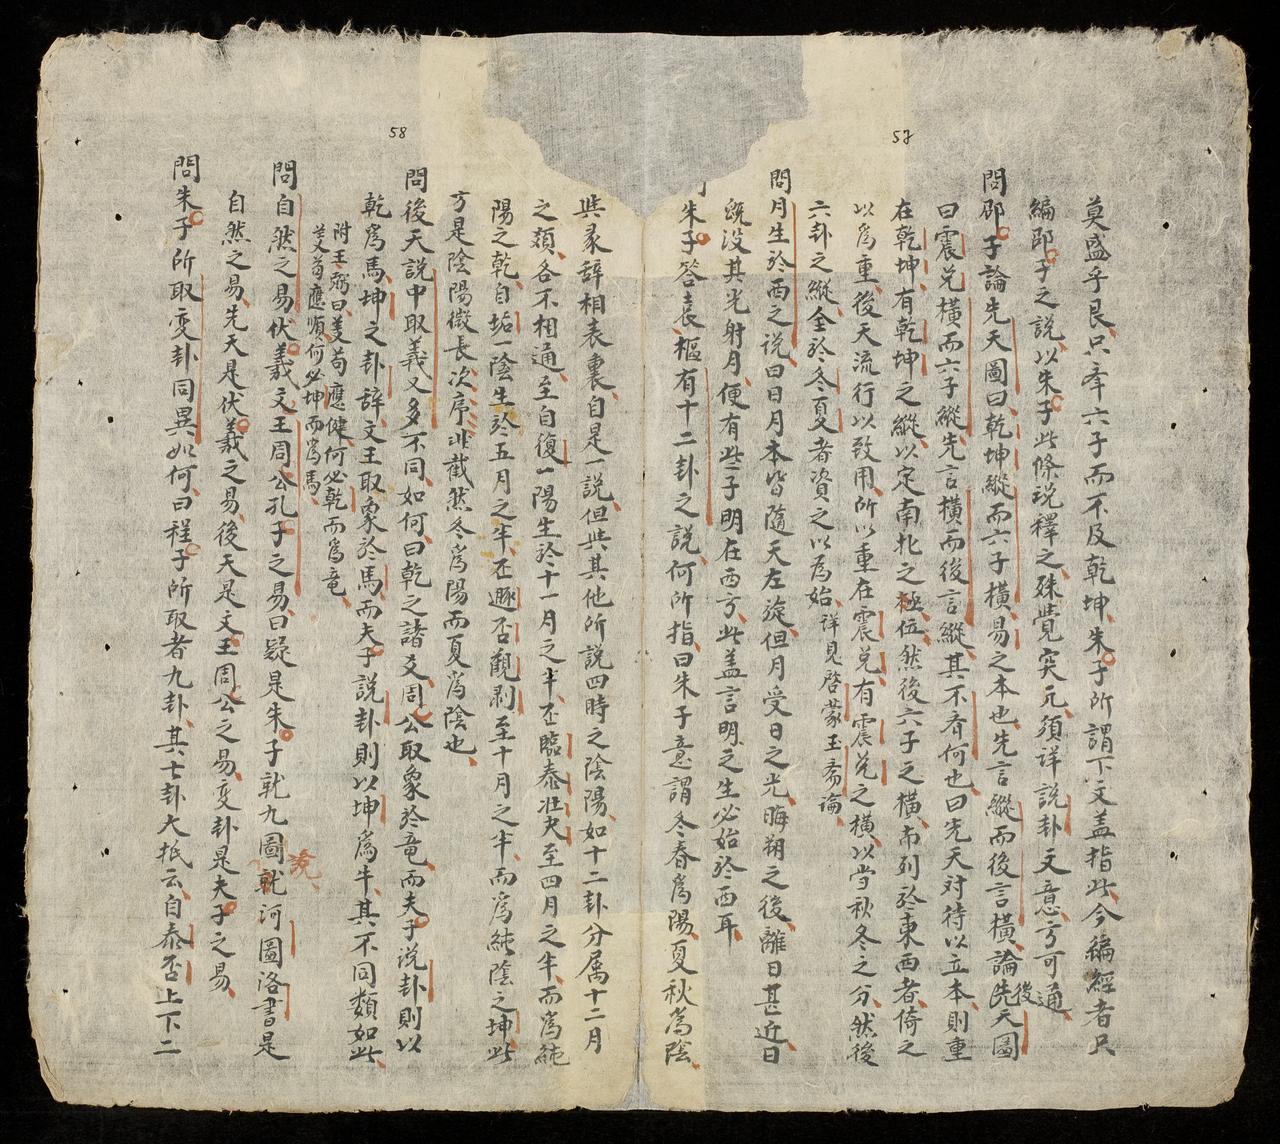 57
莫盛乎艮只舉六子而不及乾坤朱子所謂下文盖指此今編經者只
編邵子之說以朱子此條玩釋之殊覺突兀須詳說卦文意方可通
問邵子論先天圖曰乾坤縱而六子橫易之本也先言縱而後言橫論後天圖
曰震兑橫而六子縱先言橫而後言縱其不齐何也曰先天对待以立本則重
在乾坤有乾坤之縱以定南北之極位然後六子之橫布列於東西者倚之
以為重後天流行以致用所以重在震兑有震兑之橫以当秋冬之分然後
六卦之縱全於冬夏者資之以為始詳見啓蒙玉斋論
問月生於西之說曰日月本皆隨天左旋但月受日之光晦朔之後離日甚近日
既没其光射月便有些子明在西方此盖言明之生必始於西耳
朱子答袁樞有十二卦之說何所指曰朱子意謂冬春為陽夏秋為陰
與彖辞相表裏自是一說但與其他所說四時之陰陽如十二卦分属十二月
之類各不相通至自復一陽生於十一月之半丕臨泰壮夬至四月之半而為純
陽之乾自垢一陰生於五月之半丕遯否觀剥至十月之半而為純陰之坤此
方是陰陽微長次序非截然冬為陽而夏為陰也
58
問後天說中取義又多不同如何曰乾之諸爻周公取象於竜而夫子說卦則以
乾為馬坤之卦辞文王取象於馬而夫子說卦則以坤為牛其不同類如此
附王弼曰爻苟應健何必乾而為竜
爻苟應順何必坤而為馬
問自然之易伏羲文王周公孔子之易曰疑是朱子就九圖說河圖洛書是
自然之易先天是伏羲之易後天是文王周公之易变卦是夫子之易
問朱子所取变卦同異如何曰程子所取者九卦其七卦大抵云自泰否上下二